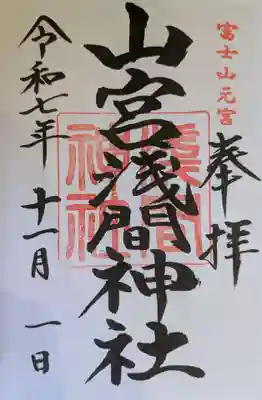 富士山元宮
奉拝
山宮浅間神社
浅間神社
令和七年 十一月 一日